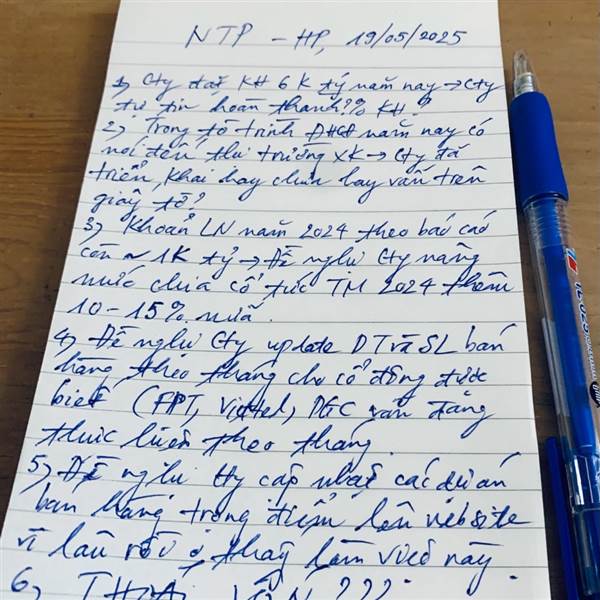 NTP - HP, 19/05/2025
1) Cty đặt KH 6K tỷ năm nay → Cty
tự tin hoàn thành ?% KH?
2) Trong tờ trình ĐHCĐ năm nay có
nói đến thị trường XK → Cty đã
triển khai hay chưa hay vẫn trên
giấy tờ?
3) Khoản LN năm 2024 theo báo cáo
còn ~ 1K tỷ → Đề nghị Cty nâng
mức chia cổ tức TM 2024 thêm
10-15% nữa.
4) Đề nghị Cty update DT và SL bán
hàng theo tháng cho cổ đông được
biết (FPT, Viettel, DGC vẫn đang
thực hiện theo tháng.
5) Đề nghị Cty cập nhật các dự án
bán hàng trọng điểm lên website
vì lâu rồi ko thấy làm việc này.
6)
TL-025